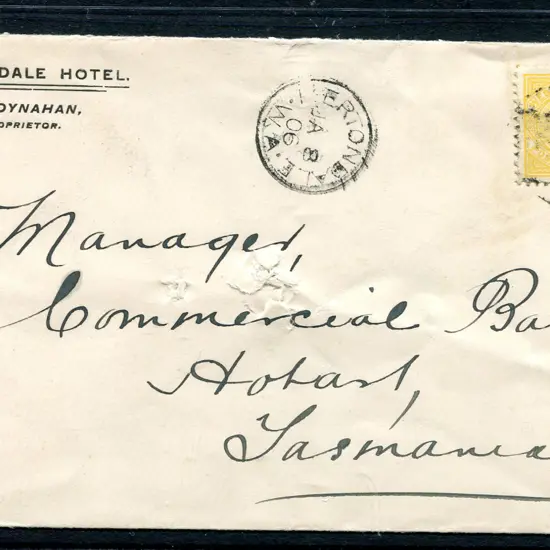 DALE HOTEL.
OYNAHAN,
OPRIETOR.
ERTONDALE W.A
JA 8
06
Manager,
Commercial Ba
Hobart,
Tasmania